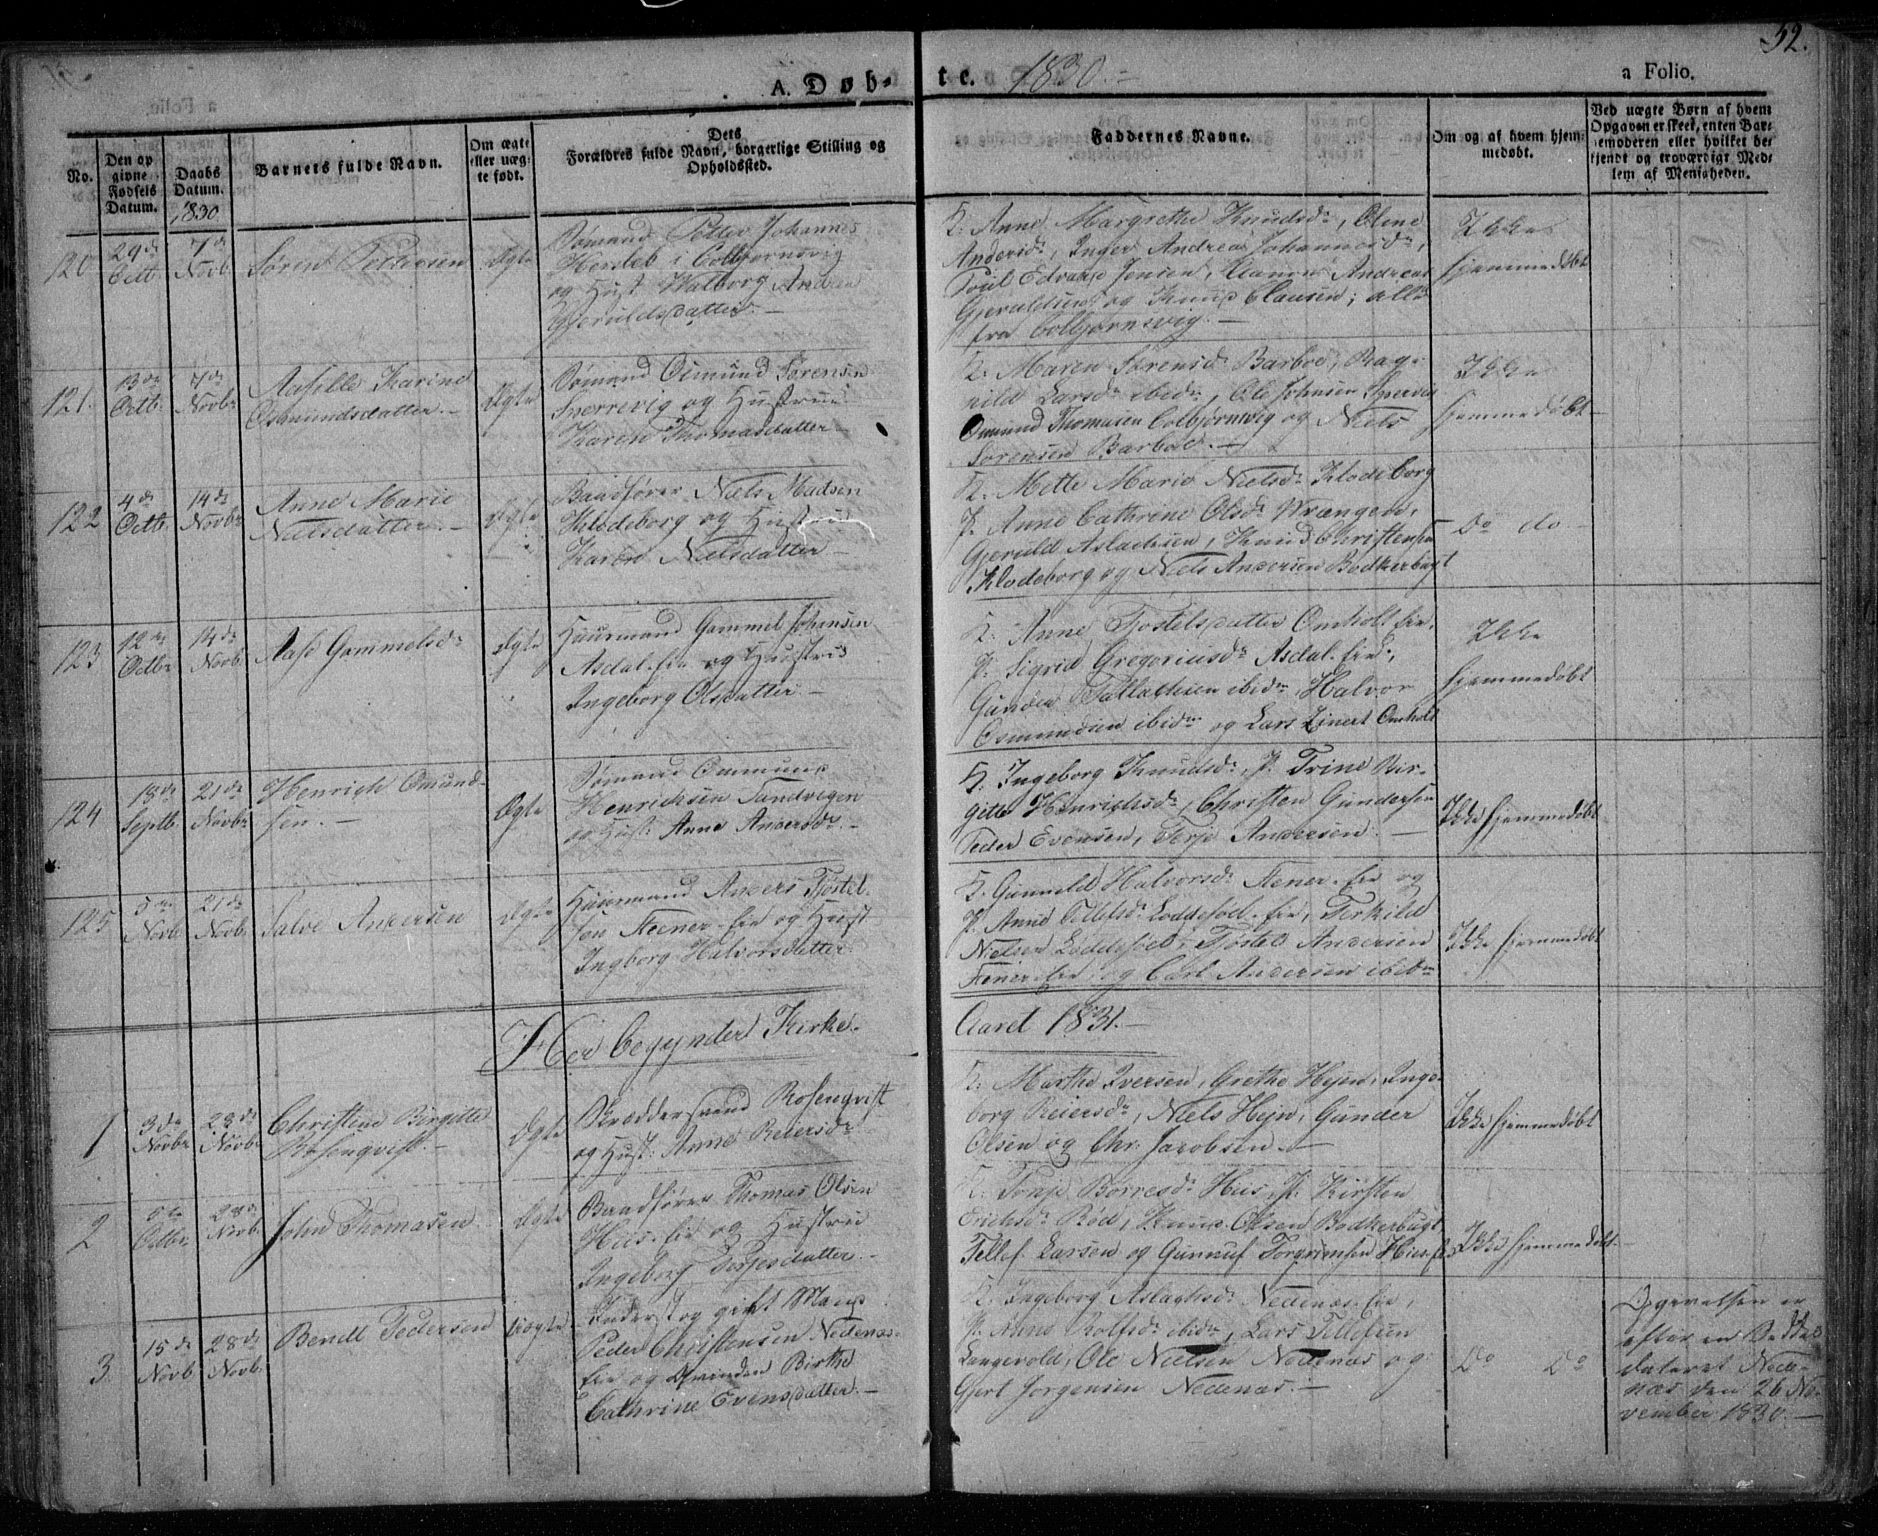 52.
A. Døb-
te. 1830.-
a Folio.
No.
Den op
givne
Fødsels
Datum.
Daabs
Datum.
1830
Barnets fulde Navn.
Om ægte
eller uæg-
te født.
Dets
Forældres fulde Navn, borgerlige Stilling og
Opholdssted.
Faddernes Navne.
Om og af hvem hjem-
medøbt.
Ved uægte Børn af hvem
Opgaven er skeet, enten Bar-
nemoderen eller hvilket be-
kjendt og troværdigt Med-
lem af Menigheden.
120
29de
Octb.
7de
Novb.
Søren Pettersen
Ægte
Sømand Petter Johannes
Herdeb i Colbjørnsvig
og Hust Walborg Andrea
Gjeruldsdatter.-
K. Anne Margrethe Knudsdr, Oline
Andersdr, Inger Andrea Johannesdr,
Poul Jensen, Aanon Andreas
Gjeruldsen og Knud Clausen; alle
fra Colbjørnsvig.-
Ikke
hjemmedøbt
121.
13de
Octb.
7de
Novbr
Aasille Karine
Osmundsdatter.-
Ægte
Sømand Osmund Sørensen
Sperrevig og Hustrue
Karen Thomasdatter-
K. Maren Sørensdr Barboe, Rag-
nild Larsdr ibidm, Ole Johnsen Spervig
Osmund Thomasen Colbjørnsvig og Niels
Sørensen Barboe.-
Ikke
hjemmedøbt
122
4de
Octb.
14de
Novbr
Anne Marie
Nielsdatter.-
Ægte
Baadfører Niels Madsen
Klodeborg og Hustrue
Karen Nielsdatter-
K. Mette Marie Nielsdr Klodeborg
P. Anne Cathrine Olsdr Wrængen,
Gjeruld Aslachsen, Knud Christensen
Klodeborg og Niels Andersen Bodkerbugt
Do do-
123
12te
Octbr
14de
Novb.
Aase Gammelsdr
Ægte
Huusmand Gammel Johansen
Asdal-eie og Hustrue
Ingeborg Olsdatter.-
K. Anne Tostelsdatter Omholt eie,
P. Sigrid Gregoriusdr Asdal-eie,
Gunder Tallachsen ibidm, Halvor
Osmundsen ibidm og Lars Einert Omholt
Ikke
hjemmedøbt
124
18de
Septb.
21de
Novbr
Henrich Omund-
sen.-
Ægte
Sømand Ommund
Henrichsen Sandvigen
og Hust: Anne Andersdr.-
K. Ingeborg Knudsdr, P. Trine Bir-
gitte Henrichsdr, Christen Gundersen
Peder Evensen, Terje Andersen.-
Ikke hjemmedøbt
125
5te
Novb
21de
Novb.
Salve Andersen
Ægte
Huusmand Anders Tostel-
sen Stener-eie og Hust
Ingborg Halvorsdatter
K. Gunneld Halvorsdr Stener-eie og
P. Anne Tellefsdr Loddesöel-eie, Terkild
Nielsen Loddesöel, Tostel Andersen
Stener-eie, og Carl Andersen ibidm
Ikke hjemmedøbt
Her begynder Kirke-
Aaret 1831.-
1
3de
Novbr
28de
Novbr
Christine Birgitte
Rosenqvist.-
Ægte
Skræddersvend Rosenqvist
og Hust: Anne Reiersdr
K. Marthe Iversen, Grethe Hejn, Inge-
borg Reiersdr, Niels Hejn, Gunder
Olsen og Chr. Jacobsen.-
Ikke hjemmedøbt
2
Octbr
28de
Novb.
John Thomasen
Ægte
Baadfører Thomas Olsen
Huus-eie og Hustrue
Ingeborg Terjesdatter.-
K. Tonje Børresdr Hus, P. Kirsten
Erichsdr Rød, Knud Olsen Bodkerbugt
Tellef Larsen og Gunnuf Torgrimsen Hus-eie
Ikke hjemmedøbt.
3.
15de
Novb
28de
Novb.
Bendt Pedersen
Uægte
Inderst og gift Mand
Peder Christensen Nedenæs-
eie og Qvinden Birthe
Cathrine Evensdatter.-
K. Ingeborg Aslachsdr Nedenæs-eie,
P. Anne Rolfsdr ibidm, Lars Tellefsen
Langevold, Ole Nielsen Nedenæs og
Gjert Jørgensen Nedenæs.-
Do Do
Opgivelsen er
efter en Seddel
dateret Nede-
næs den 26 No-
vember 1830.-